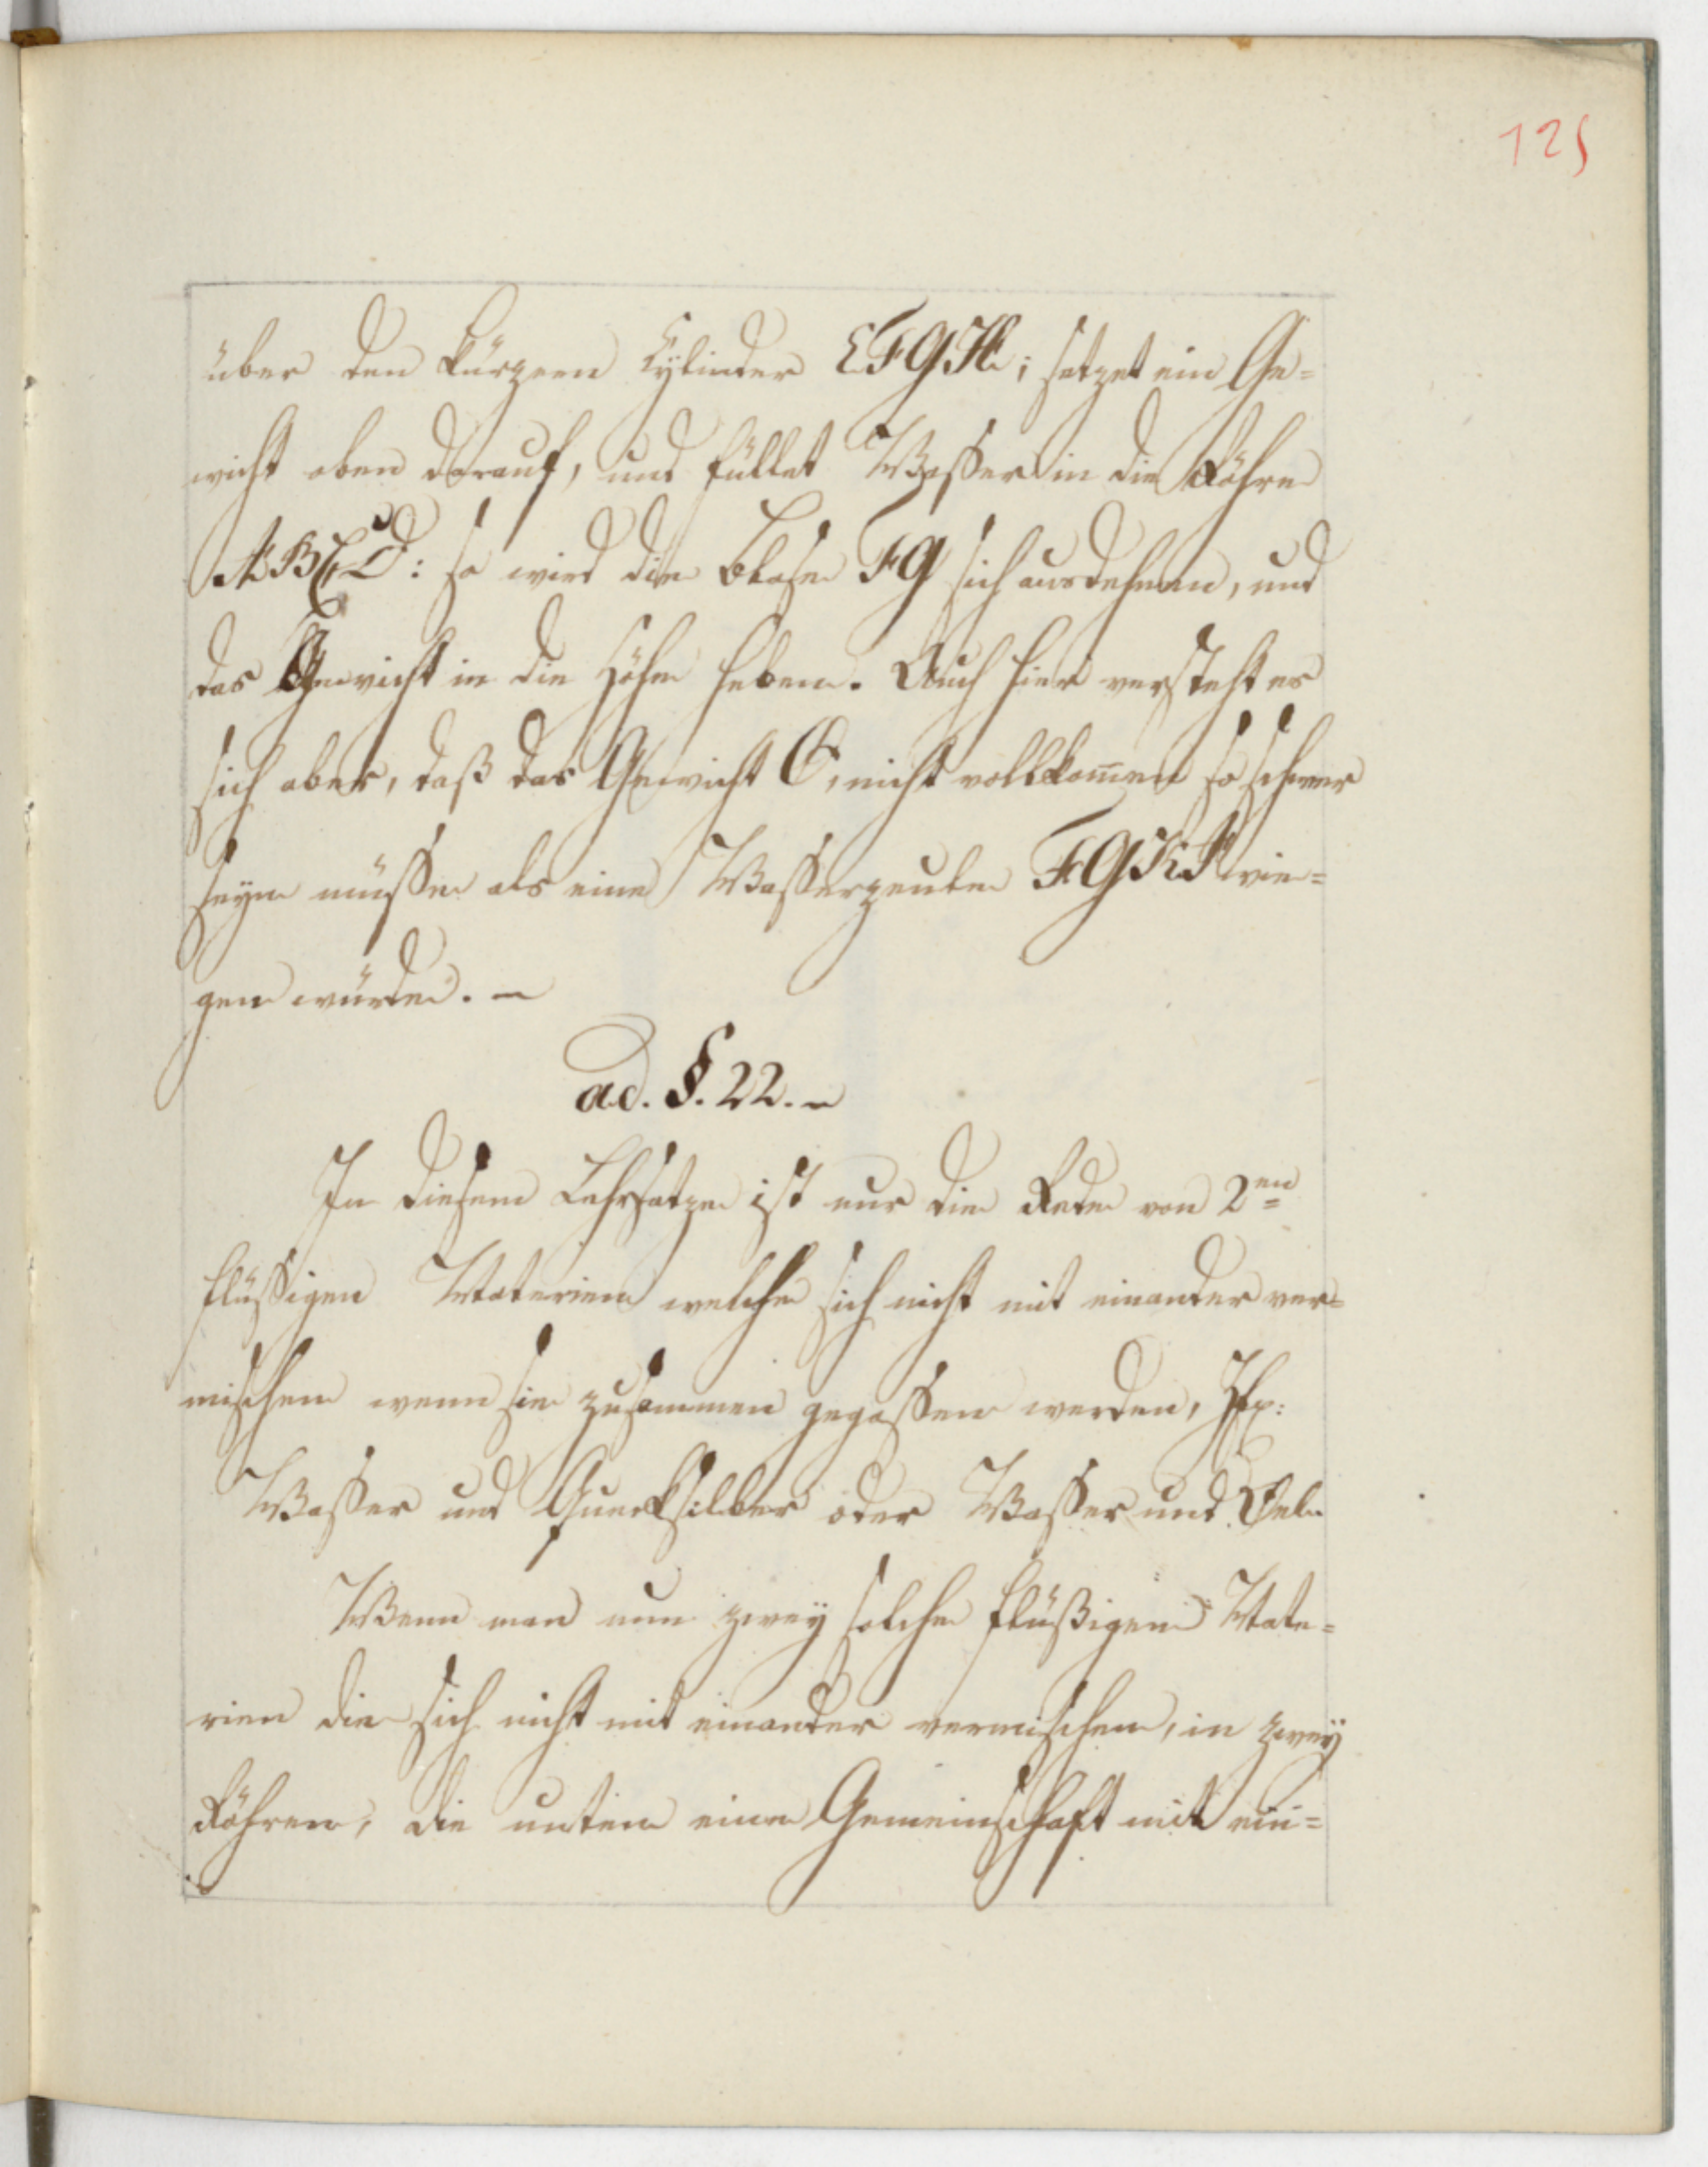 125
über den kürzern Cylinder EFGH; setzet ein Ge=
wicht oben darauf, und füllet Wasser in die Röhre
ABCD: so wird die Blase FG sich ausdehnen, und
das Gewicht in die Höhe heben. Auch hier versteht es
sich aber, daß das Gewicht O, nicht vollkom̄en so schwer
seyn müsse als eine Wasserseule FGKI wie=
gen würde. –
ad. §. 22. –
In diesem Lehrsatze ist nur die Rede von 2en
flüssigen Materien welche sich nicht mit einander ver=
mischen wenn sie zusammen gegossen werden,
Wasser und Quecksilber oder Wasser und Oel.
Wenn man nun zwey solche flüßigen Mate=
rien die sich nicht mit einander vermischen, in zwey
Röhren, die unten eine Gemeinschaft mit ein=